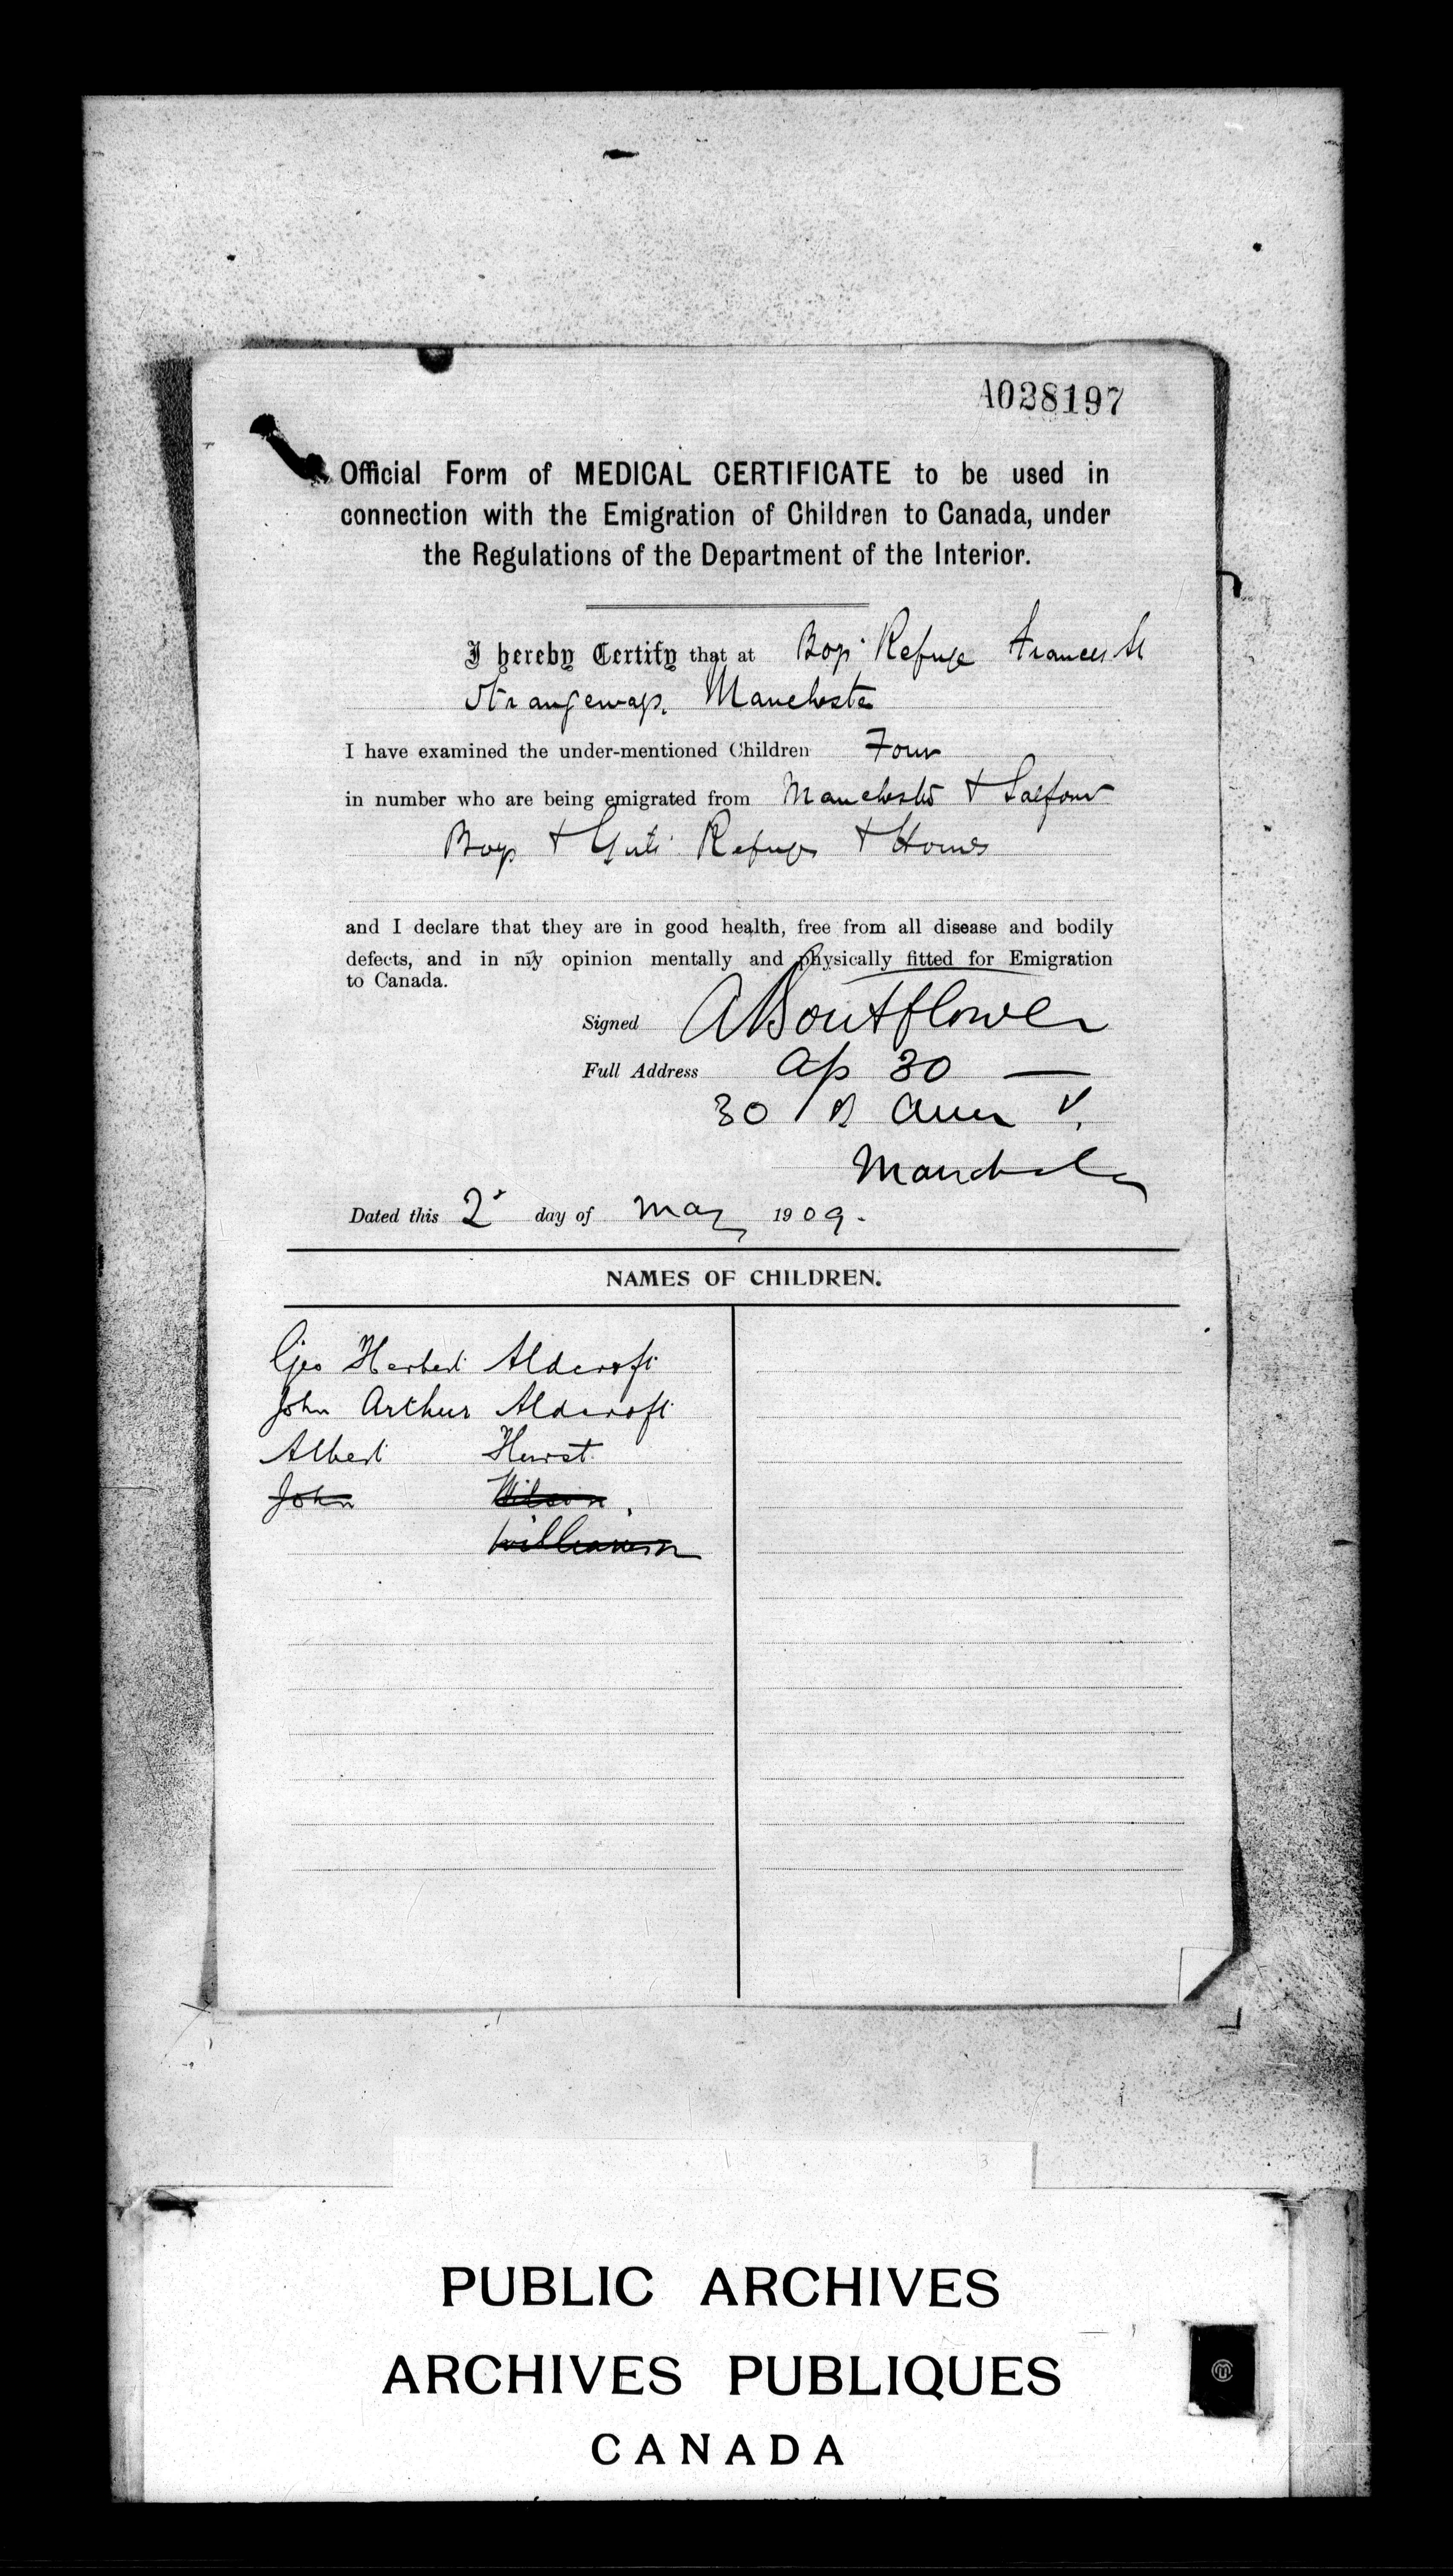 A028197
Official Form of MEDICAL CERTIFICATE to be used in
connection with the Emigration of Children to Canada, under
the Regulations of the Department of the Interior.
I hereby Certify that at Boys' Refuge Frances St
Strangeways. Manchester
I have examined the under-mentioned Children Four
in number who are being emigrated from Manchester & Salford
Boys & Girls' Refuges & Homes
and I declare that they are in good health, free from all disease and bodily
defects, and in my opinion mentally and physically fitted for Emigration
to Canada.
Signed A Boutflower
Full Address 30
30 Ann
Manchester
Dated this 2 day of May 1909.
NAMES OF CHILDREN.
Geo Herbert Aldcroft
John Arthur Aldcroft
Albert Hurst
John Wilson.
Williamson
PUBLIC ARCHIVES
ARCHIVES PUBLIQUES
CANADA